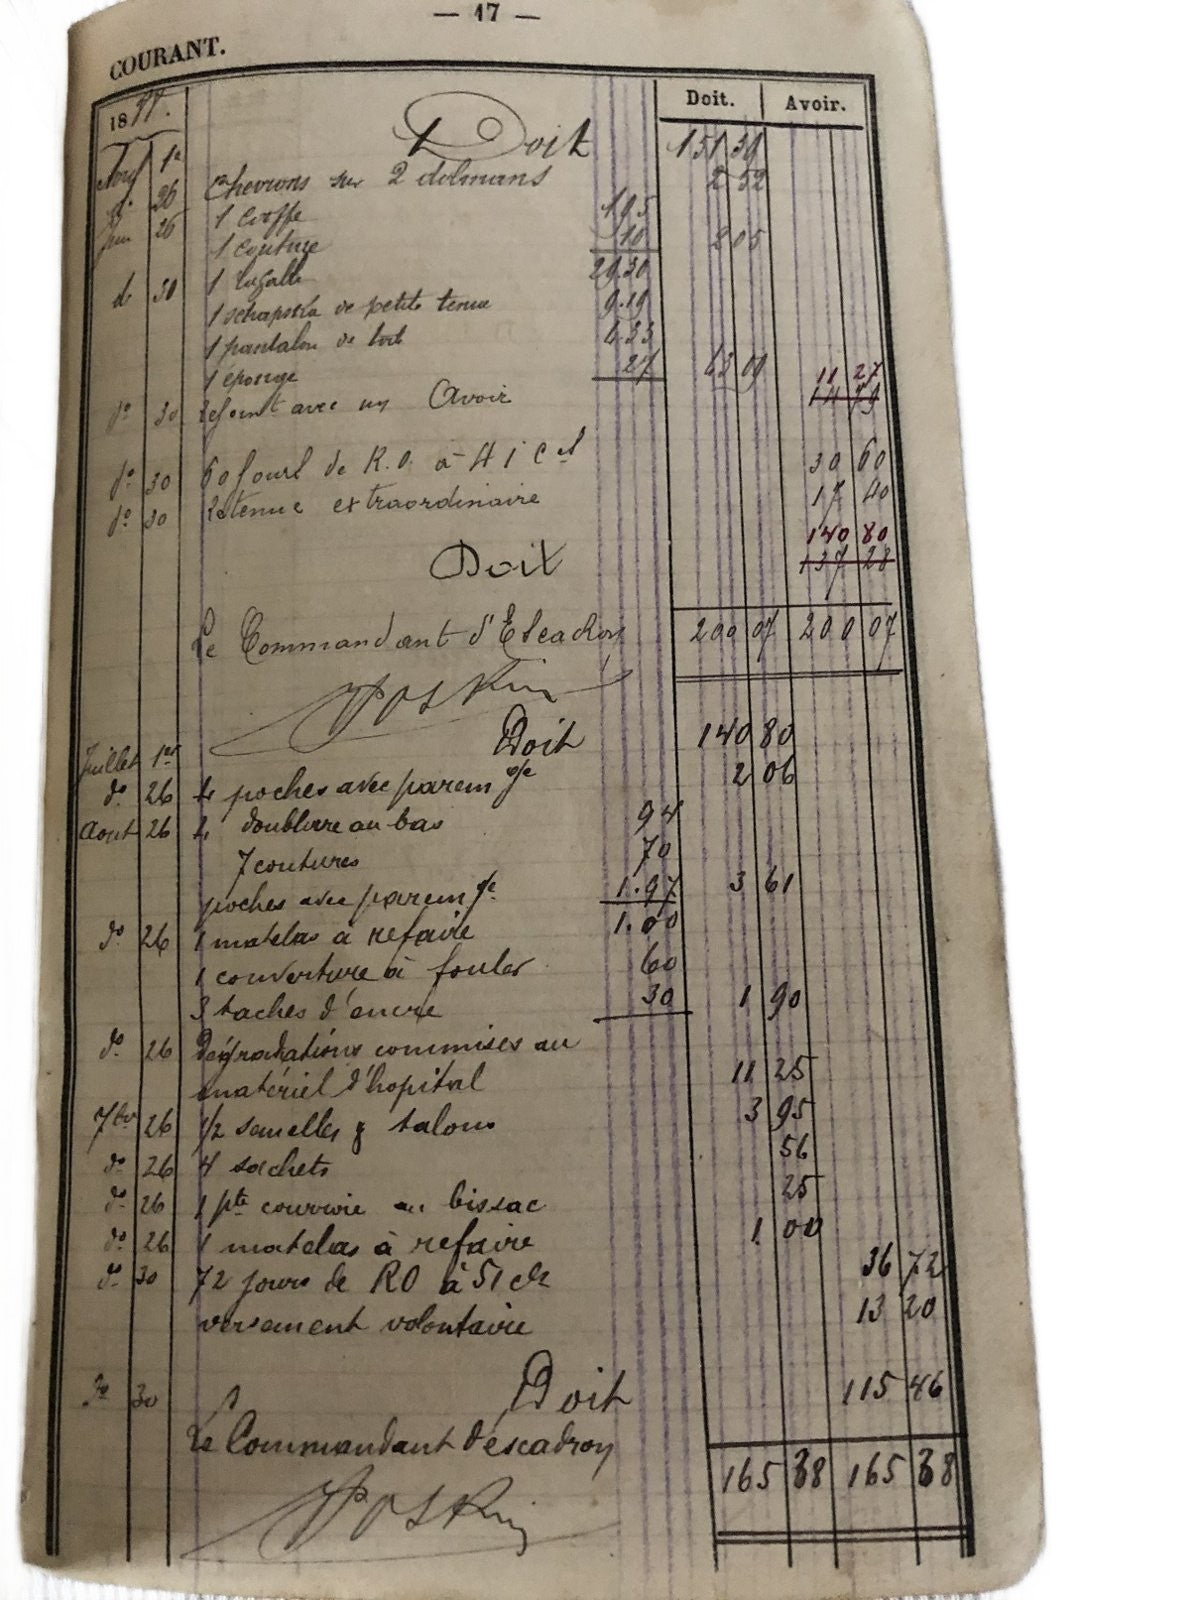 — 17 —
COURANT.
18 Doit. Avoir.
1er Doit 151 39
do 26 Chevrons sur 2 dolmans 2 52
Juin 26 1 coiffe 1.95
1 couture 10 2 05
do 30 1 29.30
1 schapska de petite tenue 9.19
1 pantalon de toile
1 éponge 27 11 27
do 30 avec un Avoir 14 79
do 30 60 Jours de R.O. à 51 Cs 30 60
do 30 Retenue extraordinaire 17 40
140 80
Doit 137 28
Le Commandant d'Escadron 200 07 200 07
Poskin
Juillet 1er Doit 140 80
do 26 4 poches avec parem ge 2 06
Aout 26 4 doublure au bas 94
7 coutures 70
poches avec parem ge 1.97 3 61
do 26 1 matelas à refaire 1.00
1 couverture à fouler 60
3 taches d'encre 30 1 90
do 26 Dégradations commises au
matériel d'hopital 11 25
7bre 26 1/2 semelles & talons 3 95
do 26 4 sachets 56
do 26 1 pte courroie au bissac 25
do 26 1 matelas à refaire 1 00
do 30 72 jours de RO à 51 cs 36 72
versement volontaire 13 20
do 30 Doit 115 46
Le Commandant d'éscadron 165 38 165 38
Poskin